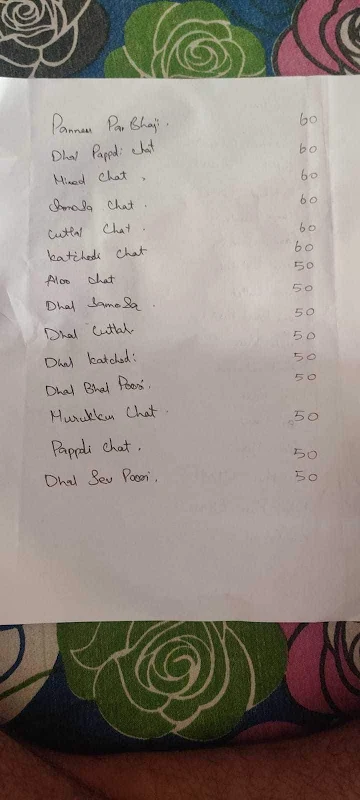 Panneer Pav Bhaji. 60
Dhal Pappdi chat 60
Mixed Chat, 60
Samosa Chat. 60
Cutlat Chat. 60
Katchodi Chat 60
Aloo chat 50
Dhal Samosa. 50
Dhal Cutlat. 50
Dhal Katchodi 50
Dhal Bhel Poori. 50
Murukku Chat. 50
Pappdi Chat. 50
Dhal Sev Poori. 50